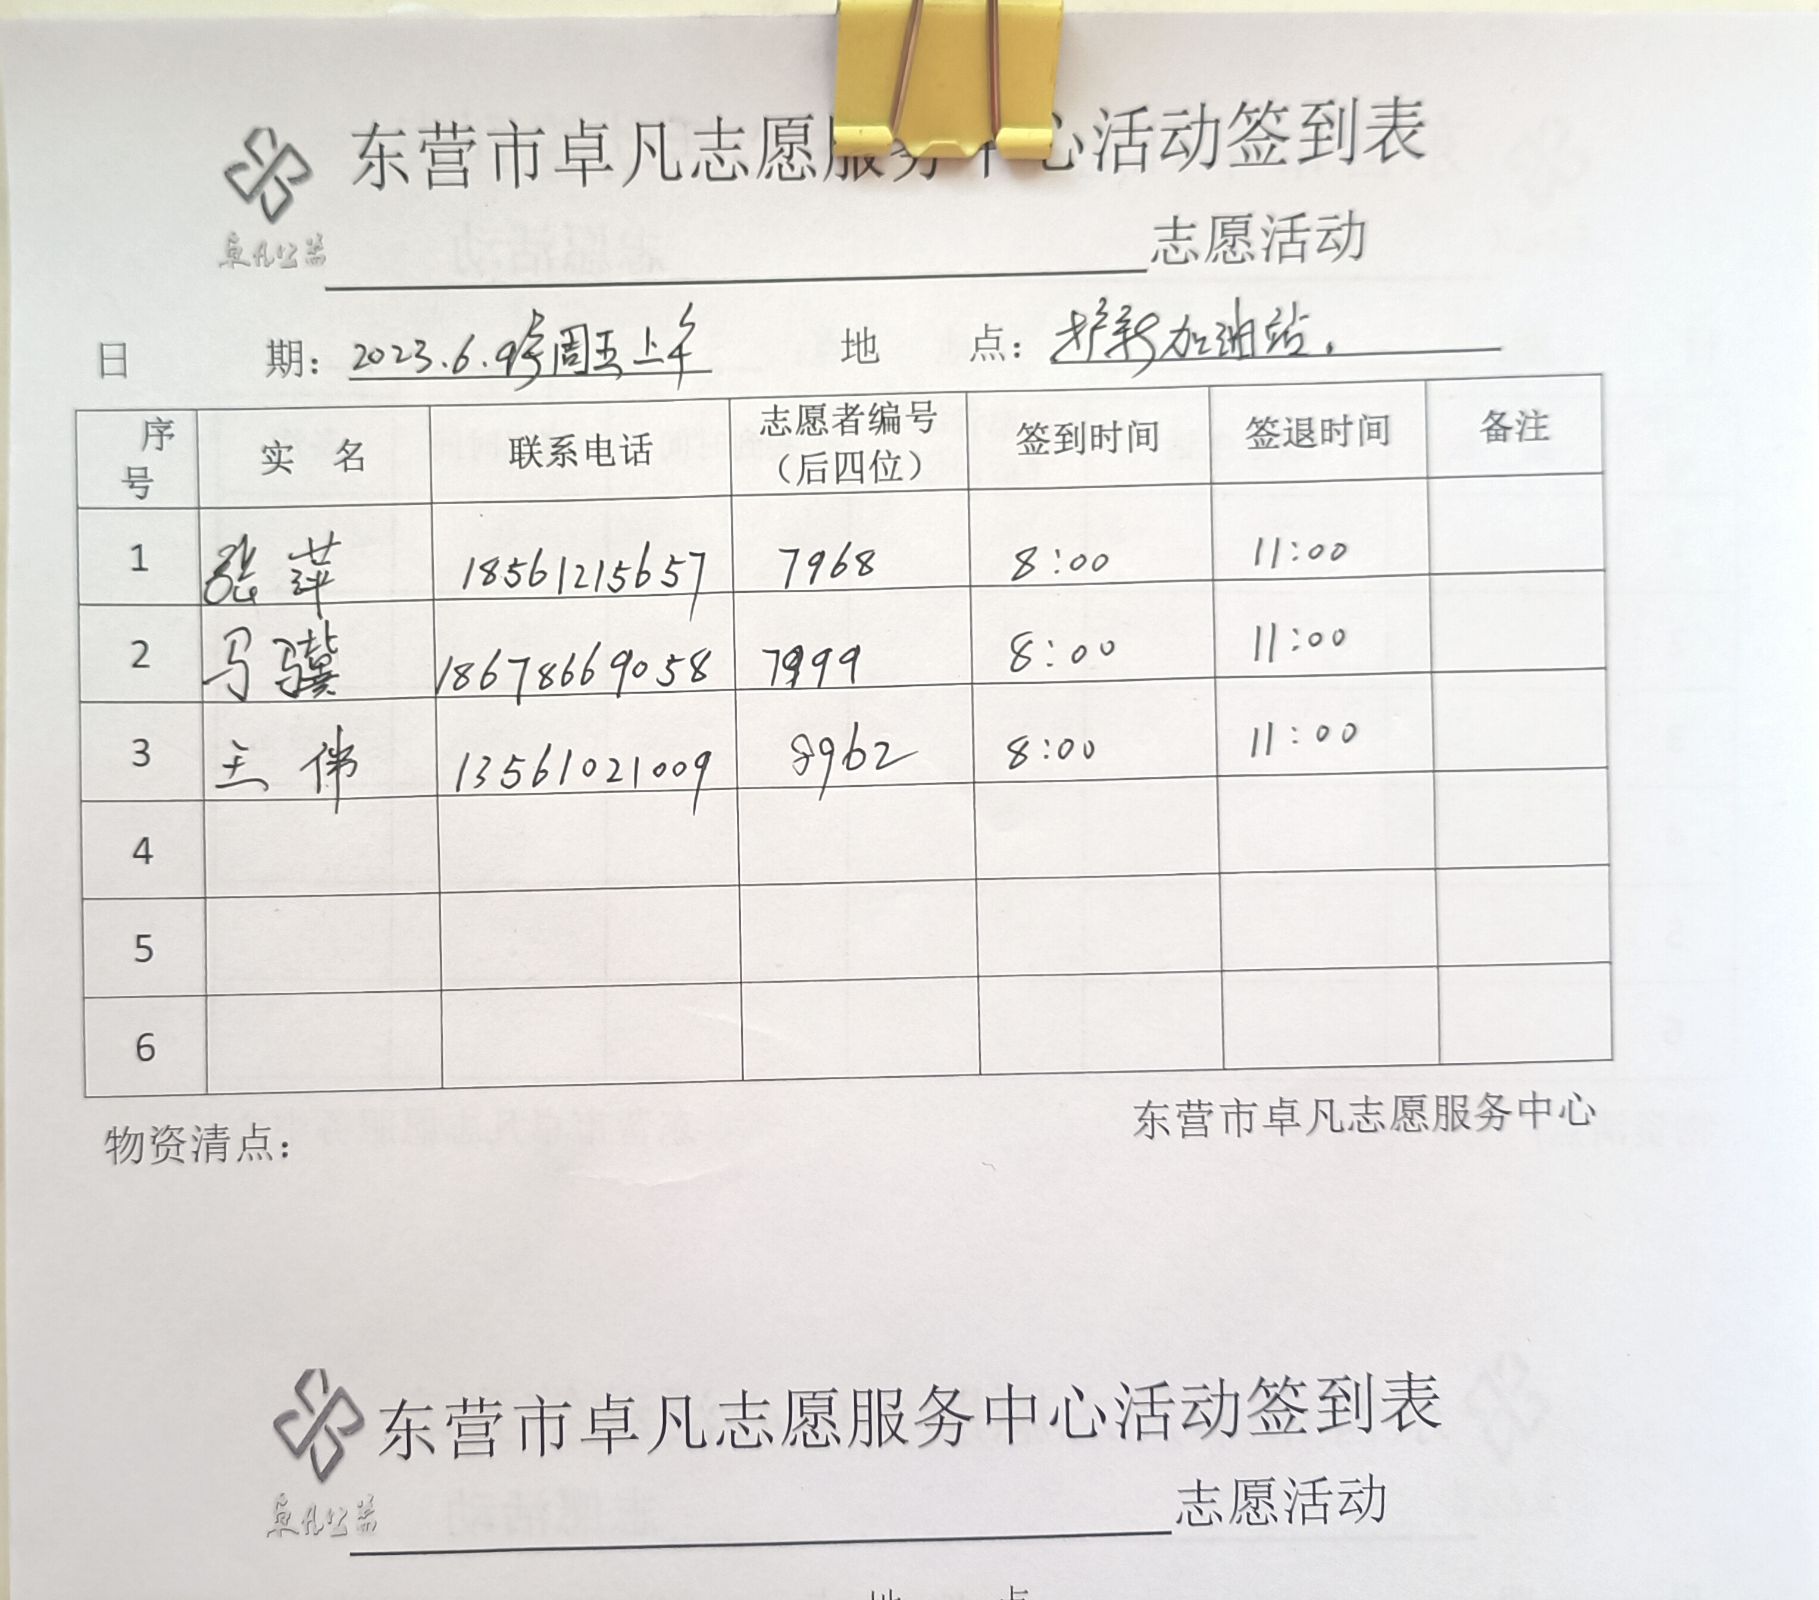 东营市卓凡志愿服务中心活动签到表
卓凡公益
志愿活动
日 期：2023.6.9号周五上午 地 点：加油站.
序号 实 名 联系电话 志愿者编号（后四位） 签到时间 签退时间 备注
1 张萍 18561215657 7968 8:00 11:00
2 马骥 18678669058 7999 8:00 11:00
3 王伟 13561021009 8962 8:00 11:00
4
5
6
物资清点： 东营市卓凡志愿服务中心
东营市卓凡志愿服务中心活动签到表
卓凡公益
志愿活动
地 点